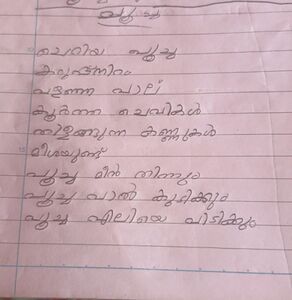 പൂച്ച
ചെറിയ പൂച്ച
കറുപ്പുനിറം
വളഞ്ഞ വാല്
കൂർത്ത ചെവികൾ
തിളങ്ങുന്ന കണ്ണുകൾ
മീശയുണ്ട്
പൂച്ച മീൻ തിന്നും
പൂച്ച പാൽ കുടിക്കും
പൂച്ച എലിയെ പിടിക്കും